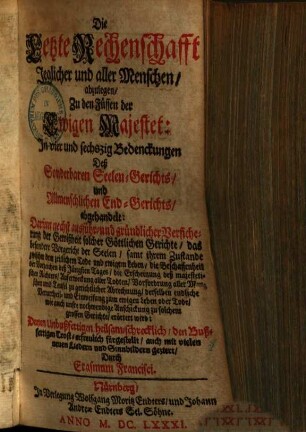 Die
Letzte Rechenschafft
Jeglicher und aller Menschen/
abzulegen/
Zu den Füssen der
Ewigen Majestet:
In vier und sechszig Bedenckungen
Deß
Sonderbaren Seelen-Gerichts/
und
Allmenschlichen End-Gerichts/
abgehandelt:
Darinn nechst ausführ- und gründlicher Versiche-
rung der Gewißheit solcher Göttlichen Gerichte/ das
besondere Vorgericht der Seelen/ samt ihrem Zustande
zwischen dem zeitlichen Tode und ewigem Leben/ die Beschaffenheit
der Vorboten deß Jüngsten Tages/ die Erscheinung deß majestetis-
schen Richters/ Auferweckung aller Todten/ Vorforderung aller Men-
schen und Teufel zu gerichtlicher Abrechnung/ derselben endliche
Verurtheil- und Einweisung zum ewigen Leben oder Tode/
wie auch unsre rechtmessige Anschickung zu solchem
grossen Gerichte/ erörtert wird:
Denen Unbußfertigen heilsam-schrecklich/ den Buß-
fertigen Trost-erfreulich fürgestellt/ auch mit vielen
neuen Liedern und Sinnbildern geziert/
Durch
Erasmum Francisci.
Nürnberg/
In Verlegung Wolfgang Moritz Endters/ und Johann
Andreæ Endters Sel. Söhne.
ANNO M. DC. LXXXI.